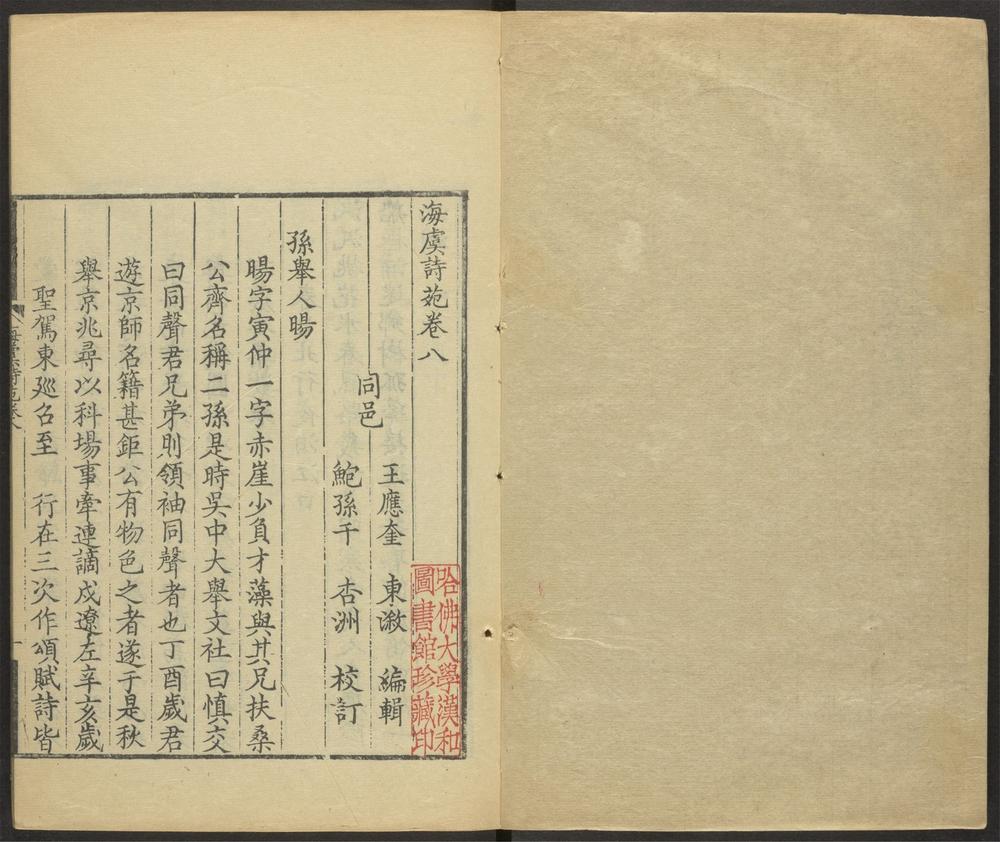 海虞詩苑卷八
同邑
王應奎 東溆 編輯
鮑孫千 杏洲 校訂
孫舉人暘
暘字寅仲一字赤崖少負才藻與其兄扶桑
公齊名稱二孫是時吳中大舉文社曰慎交
曰同聲君兄弟則領袖同聲者也丁酉歲君
遊京師名籍甚鉅公有物色之者遂于是秋
舉京兆尋以科場事牽連謫戍遼左辛亥歲
聖駕東廵召至 行在三次作頌賦詩皆
海虞詩苑卷八
一
哈佛大學漢和
圖書館珍藏印